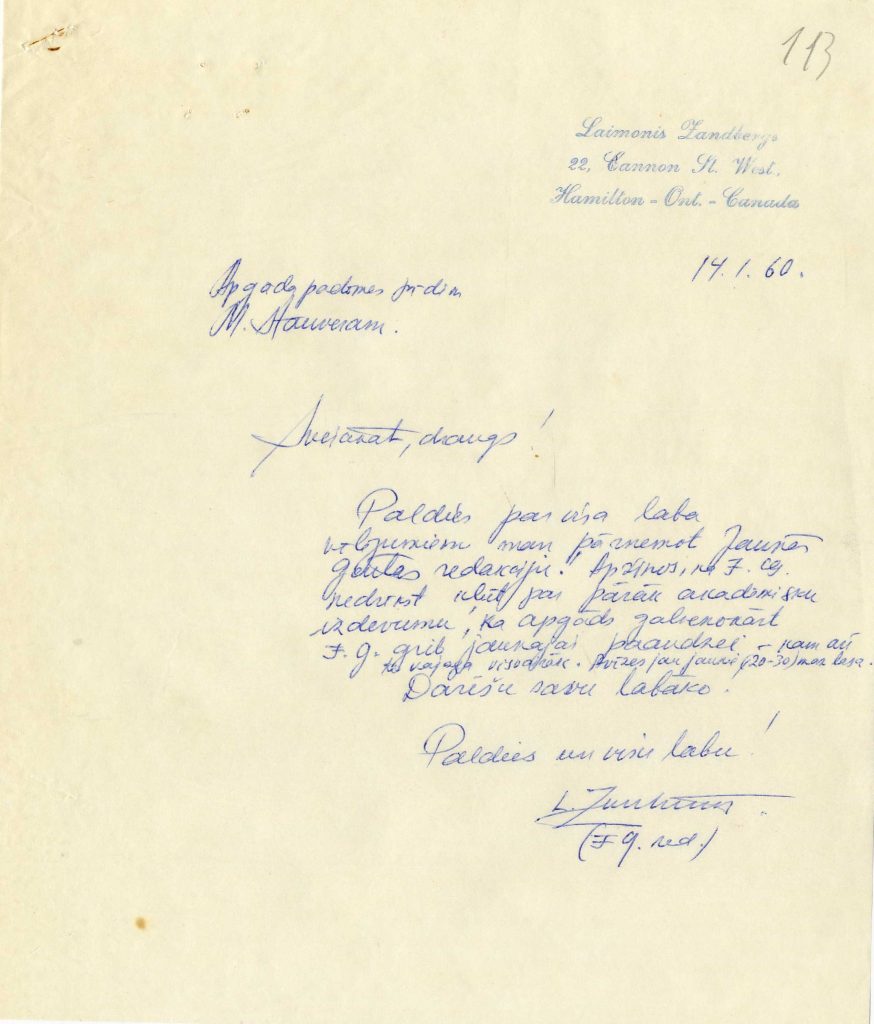 113
Laimonis Zandbergs
22, Cannon St. West,
Hamilton - Ont. - Canada
14.1.60.
Apgāda padomes
M. Stauveram.
Sveicināt, draugs!
Paldies par visa laba
vēlējumiem man pārņemot Jaunās
gaitas redakciju! Apzinos, ka J. g.
nedrīkst kļūt par pārāk akadēmisku
izdevumu, ka apgāds galvenokārt
J. g. grib jaunajai paaudzei - kam arī
to vajaga visvairāk. Avīzes jau jaunie (20-30) maz lasa.
Darīšu savu labāko.
Paldies un visu labu!
(J g. red.)